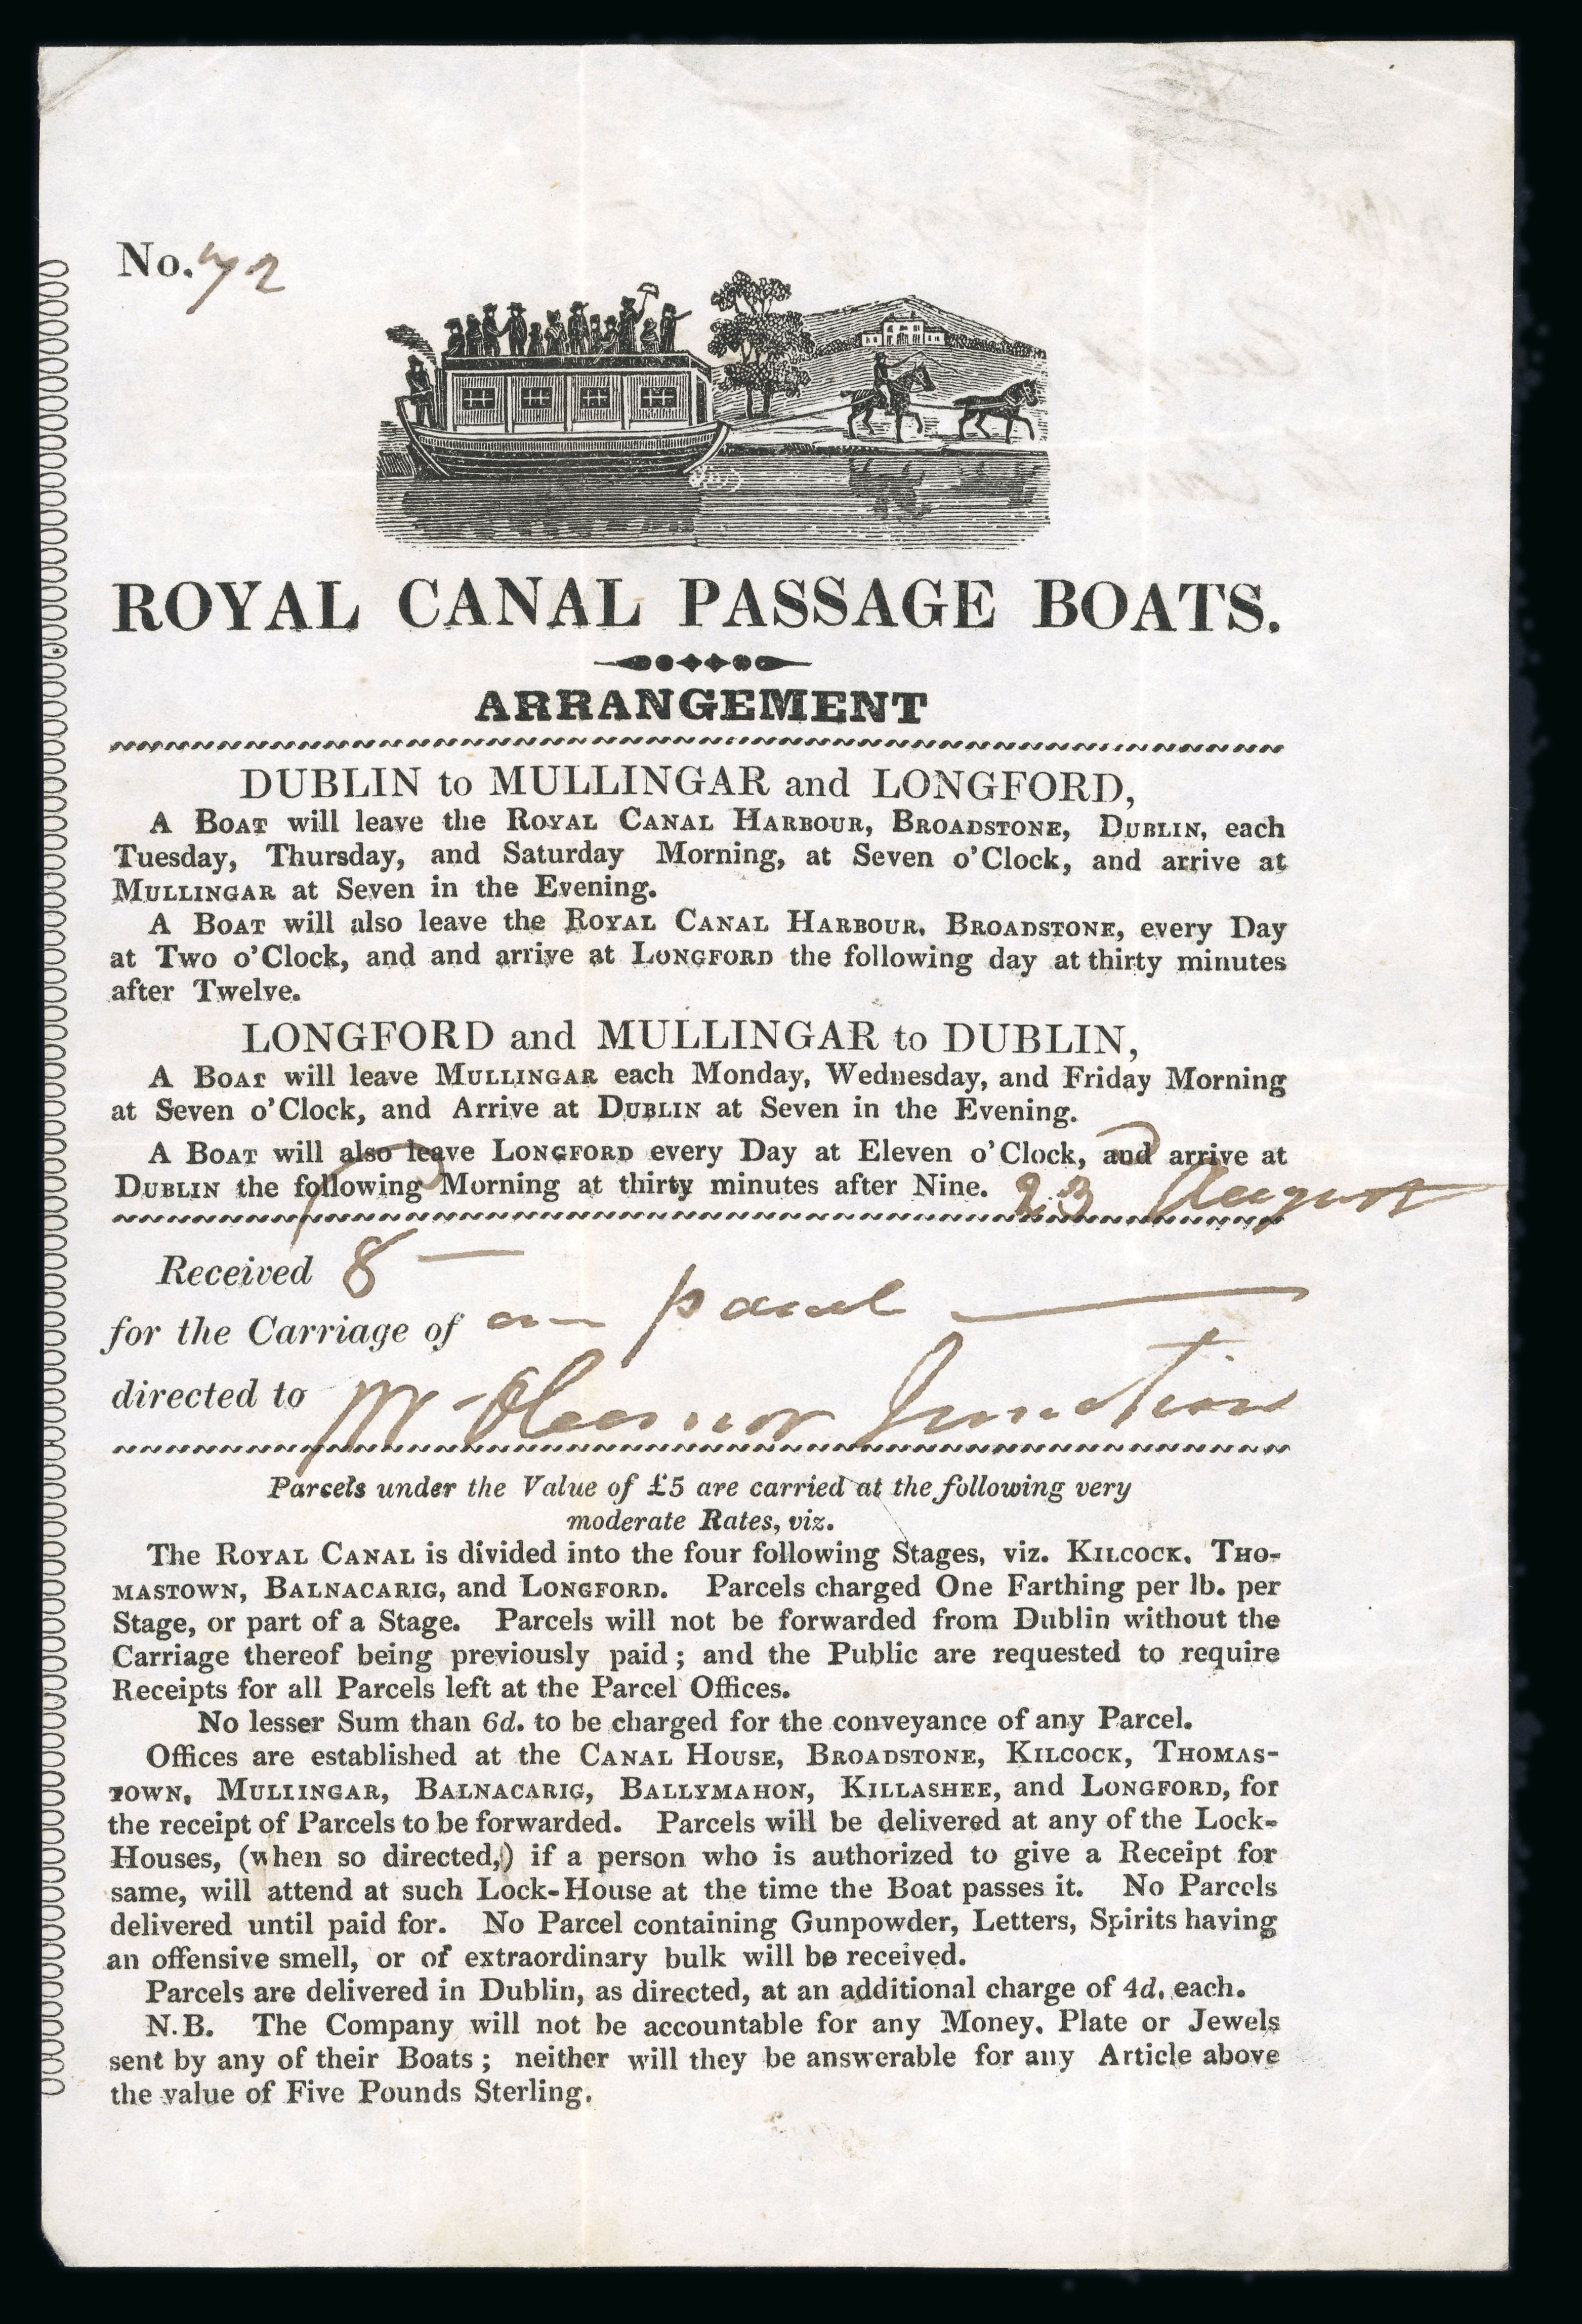 No. 72
ROYAL CANAL PASSAGE BOATS.
ARRANGEMENT
DUBLIN to MULLINGAR and LONGFORD,
A BOAT will leave the ROYAL CANAL HARBOUR, BROADSTONE, DUBLIN, each
Tuesday, Thursday, and Saturday Morning, at Seven o'Clock, and arrive at
MULLINGAR at Seven in the Evening.
A BOAT will also leave the ROYAL CANAL HARBOUR, BROADSTONE, every Day
at Two o'Clock, and and arrive at LONGFORD the following day at thirty minutes
after Twelve.
LONGFORD and MULLINGAR to DUBLIN,
A BOAT will leave MULLINGAR each Monday, Wednesday, and Friday Morning
at Seven o'Clock, and Arrive at DUBLIN at Seven in the Evening.
A BOAT will also leave LONGFORD every Day at Eleven o'Clock, and arrive at
DUBLIN the following Morning at thirty minutes after Nine.
23 August
Received 8
for the Carriage of a parcel
directed to Junction
Parcels under the Value of £5 are carried at the following very
moderate Rates, viz.
The ROYAL CANAL is divided into the four following Stages, viz. KILCOCK, THO-
MASTOWN, BALNACARIG, and LONGFORD. Parcels charged One Farthing per lb. per
Stage, or part of a Stage. Parcels will not be forwarded from Dublin without the
Carriage thereof being previously paid; and the Public are requested to require
Receipts for all Parcels left at the Parcel Offices.
No lesser Sum than 6d. to be charged for the conveyance of any Parcel.
Offices are established at the CANAL HOUSE, BROADSTONE, KILCOCK, THOMAS-
TOWN, MULLINGAR, BALNACARIG, BALLYMAHON, KILLASHEE, and LONGFORD, for
the receipt of Parcels to be forwarded. Parcels will be delivered at any of the Lock-
Houses, (when so directed,) if a person who is authorized to give a Receipt for
same, will attend at such Lock-House at the time the Boat passes it. No Parcels
delivered until paid for. No Parcel containing Gunpowder, Letters, Spirits having
an offensive smell, or of extraordinary bulk will be received.
Parcels are delivered in Dublin, as directed, at an additional charge of 4d. each.
N.B. The Company will not be accountable for any Money, Plate or Jewels
sent by any of their Boats; neither will they be answerable for any Article above
the value of Five Pounds Sterling.